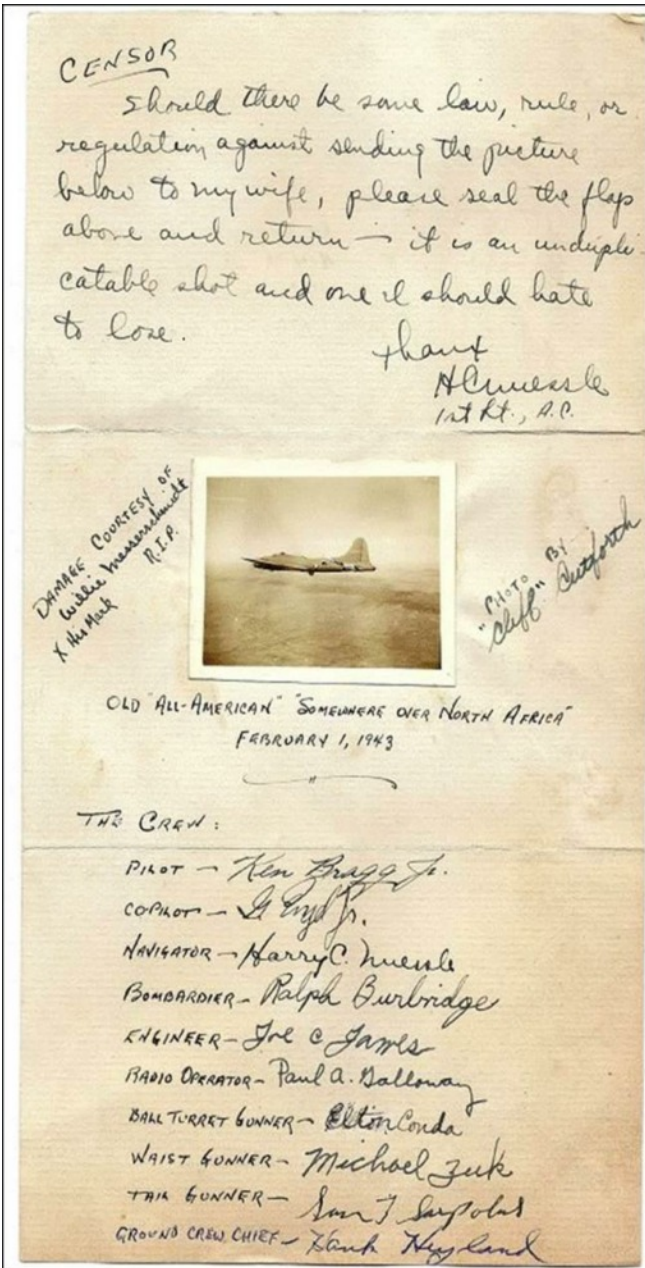 CENSOR
Should there be some law, rule, or
regulation against sending the picture
below to my wife, please seal the flaps
above and return — it is an undupli-
catable shot and one I should hate
to lose.
thanx
HCNuessle
1st Lt., A.C.
DAMAGE COURTESY OF
Willie Messerschmidt
X His Mark R.I.P.
"PHOTO BY
"Cliff" Cutforth
OLD "ALL-AMERICAN" "SOMEWHERE OVER NORTH AFRICA"
FEBRUARY 1, 1943
THE CREW:
PILOT — Ken Bragg Jr.
COPILOT — Jr.
NAVIGATOR — Harry C. Nuessle
BOMBARDIER — Ralph Burbridge
ENGINEER — Joe C James
RADIO OPERATOR — Paul A. Galloway
BALL TURRET GUNNER — Elton Conda
WAIST GUNNER — Michael Zuk
TAIL GUNNER — Sam T
GROUND CREW CHIEF — Hank Hyland